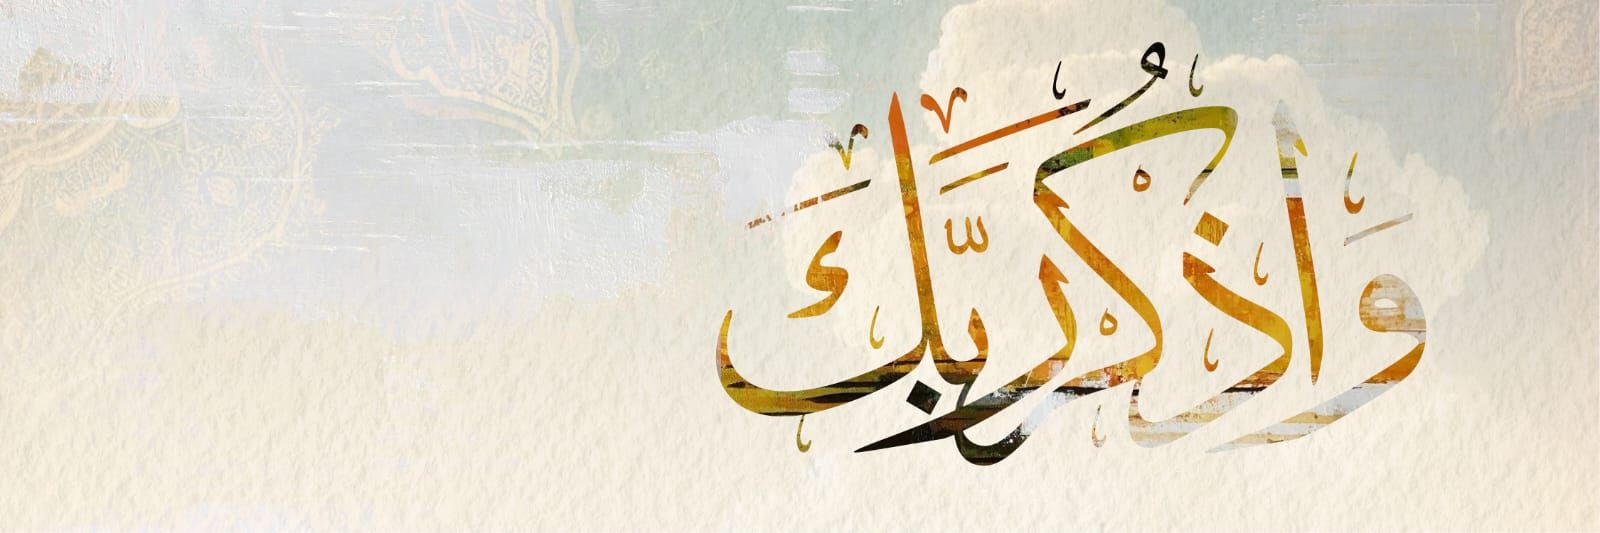 وَاذْكُرْ رَبَّكَ